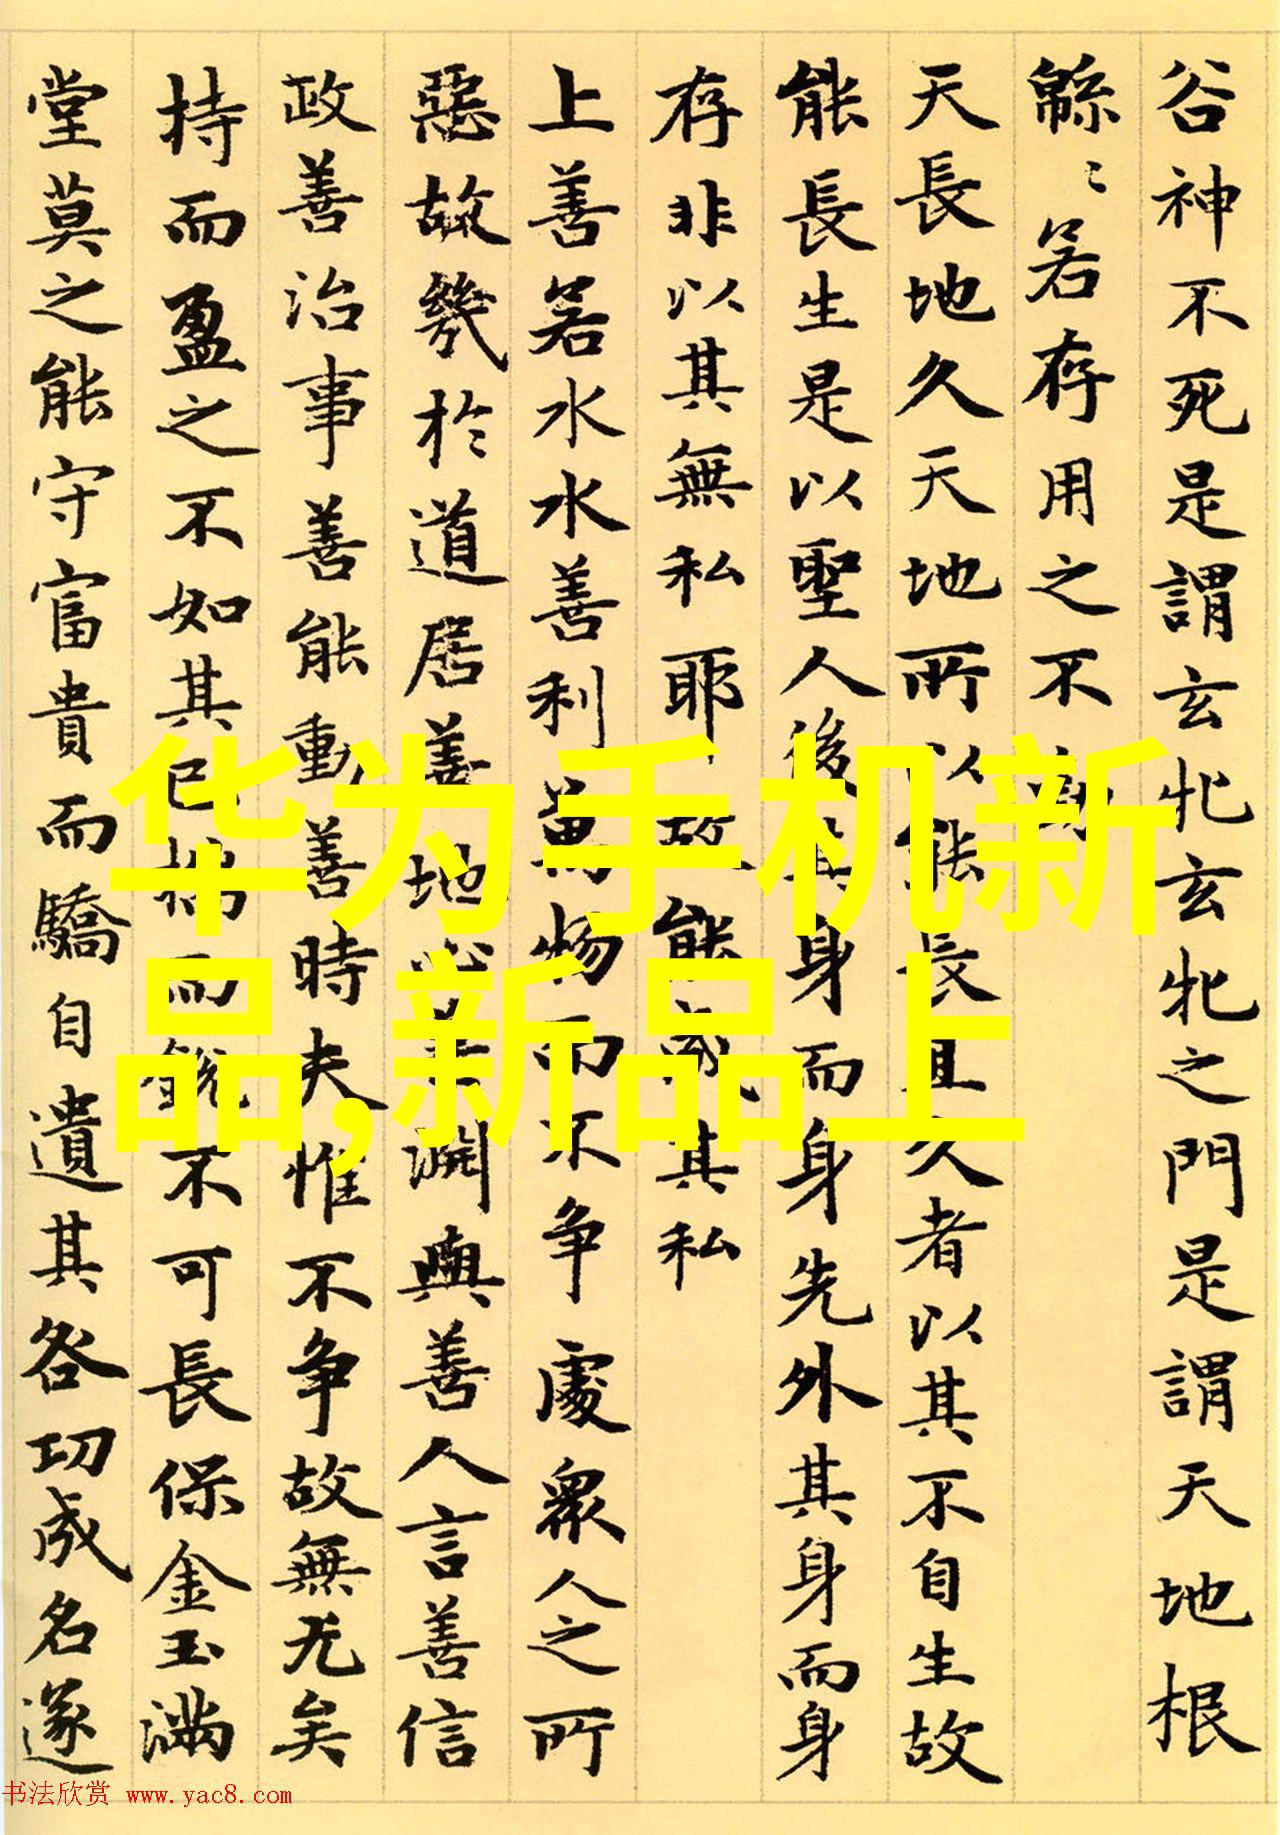 谷神不死是謂玄牝玄牝之門是謂天地根
緜〻若存用之不
天長地久天地所以能長且久者以其不自生故
能長生是以聖人後其身而身先外其身而身
存非以其無私耶故能成其私
上善若水水善利萬物而不争處衆人之所
惡故幾於道居善地心善渊與善人言善信
政善治事善能動善時夫惟不争故無尤矣
持而盈之不如其已揣而銳不可長保金玉滿
堂莫之能守富貴而驕自遺其咎功成名遂
华为手机新
品,新品上
书法欣赏 www.yac8.com